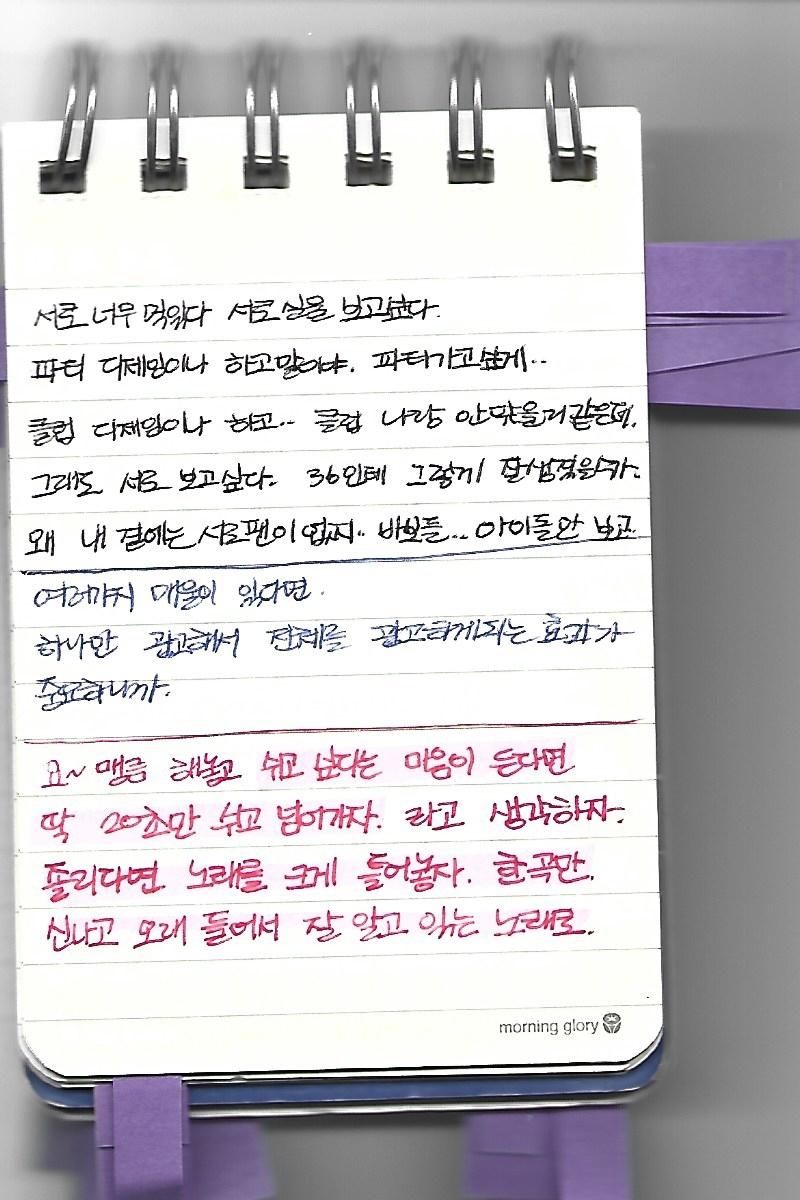 서로 너무 멋있다 서로 실물 보고싶다.
파티 디제잉이나 하고말이야. 파티가고싶게..
클럽 디제잉이나 하고.. 클럽 나랑 안맞을거같은데.
그래도 서로 보고싶다. 36인데 그렇게 잘생겼을수가.
왜 내 곁에는 서로팬이 없지.. 바보들... 아이돌안 보고
여러가지 매물이 있다면.
하나만 광고해서 전체를 광고하게되는 효과가
중요하니까.
요~ 맹큼 해놓고 쉬고 싶다는 마음이 든다면
딱 20초만 쉬고 넘어가자. 라고 생각하자.
졸리다면 노래를 크게 들어놓자. 한곡만.
신나고 오래 들어서 잘 알고 있는 노래로.
morning glory